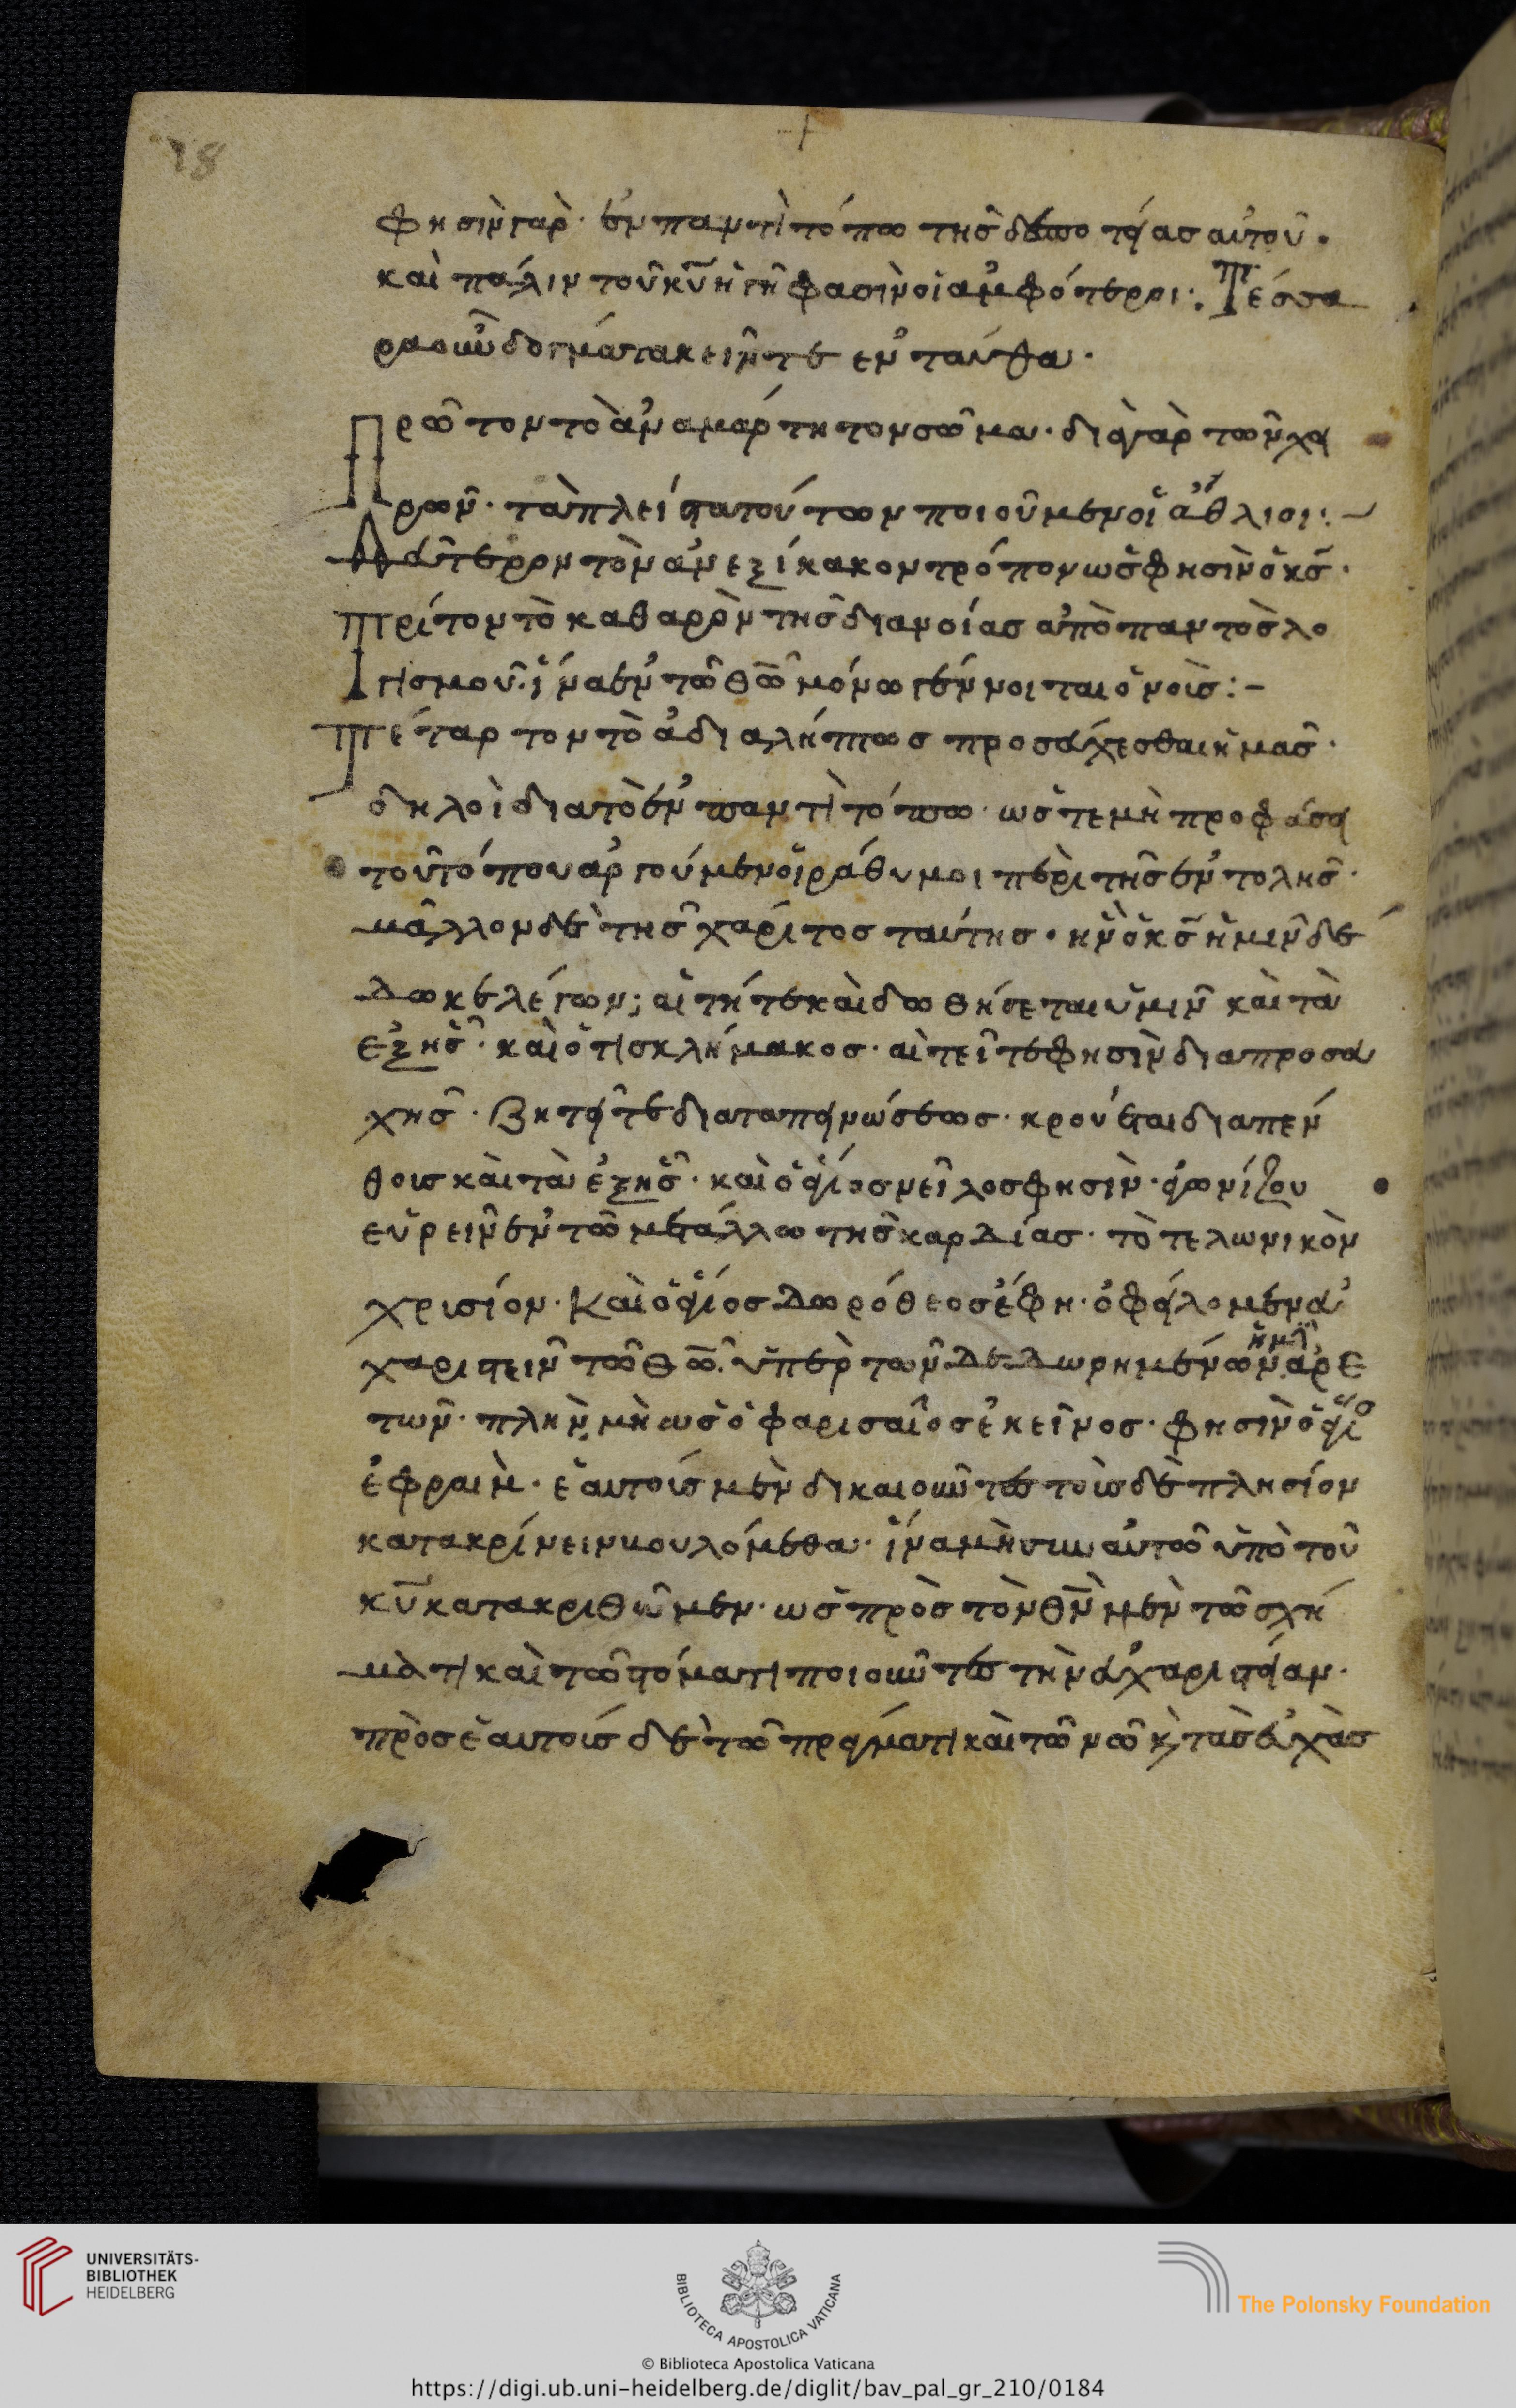 18
φησὶν γὰρ· ἐν παντὶ τόπω τῆς δεσποτείας αὐτοῦ.
καὶ πάλιν τοῦ κῡ ἡ γῆ φασὶν οἱ ἀμφότεροι: Τέσσα
ρα οὖν δόγματα κεῖνται ἐνταύθα·
Πρῶτον τὸ ἀναμάρτητον σῶμα· διὰ γὰρ τῶν χει
ρῶν· τὰ πλείστα τούτων ποιοῦμεν οἱ ἄθλιοι:
Δεύτερον τὸν ἀνεξίκακον τρόπον ὥς φησὶν ὁ κς̄·
Τρίτον τὸ καθαρὸν τῆς διανοίας ἀπὸ παντὸς λο
γισμοῦ. ἵνα ἐν τῶ θῶ μόνω γένοιται ὁ νοῦς:-
Τέταρτον τὸ ἀδιαλήπτως προσεύχεσθαι ἡμᾶς·
δηλοῖ διὰ τὸ ἐν παντὶ τόπω· ὥστε μὴ προφάσει
τοῦ τόπου ἀργούμεν οἱ ράθυμοι περὶ τῆς ἐντολῆς·
μᾶλλον δὲ τῆς χάριτος ταύτης· ἣν ὁ κς̄ ἡμῖν δέ
δωκε λέγων; αἰτήτε καὶ δωθήσεται ὑμῖν καὶ τὰ
ἑξῆς· καὶ ὁ τῆς κλήμακος· αἰτεῖτε φησὶν διὰ προσευ
χῆς· ζητεῖτε διὰ ταπεινώσεως· κρούεται διὰ πέν
θους καὶ τὰ ἑξῆς· καὶ ὁ ἅγιος νεῖλος φησὶν· ἀγωνίζου
εὑρεῖν ἐν τῶ μετάλλω τῆς καρδίας· τὸ τελωνικὸν
χρισίον· καὶ ὁ ἅγιος δωρόθεος ἔφη· ὀφείλομεν εὐ
χαριστεῖν τῶ θῶ ὑπὲρ τῶν δεδωρημένων ἡμῖν ἀρε
τῶν· πλὴν μὴ ὡς ὁ φαρισαῖος ἐκεῖνος· φησὶν ὁ ἅγιος
ἐφραὶμ· ἑαυτοὺς μὲν δικαιοῦντες τοὺς δὲ πλησίον
κατακρίνειν βουλόμεθα· ἵνα μὴ σὺν αὐτῶ ὑπὸ τοῦ
κῡ κατακριθῶμεν· ὡς πρὸς τὸν θν̄ μὲν τῶ σχή
ματι καὶ τῶ στόματι ποιοῦντες τὴν εὐχαριστείαν·
πρὸς ἑαυτοὺς δὲ τῶ πράγματι καὶ τῶ νοῶ κ τὰς εὐχὰς
UNIVERSITÄTS-
BIBLIOTHEK
HEIDELBERG
BIBLIOTECA APOSTOLICA VATICANA
The Polonsky Foundation
© Biblioteca Apostolica Vaticana
https://digi.ub.uni-heidelberg.de/diglit/bav_pal_gr_210/0184